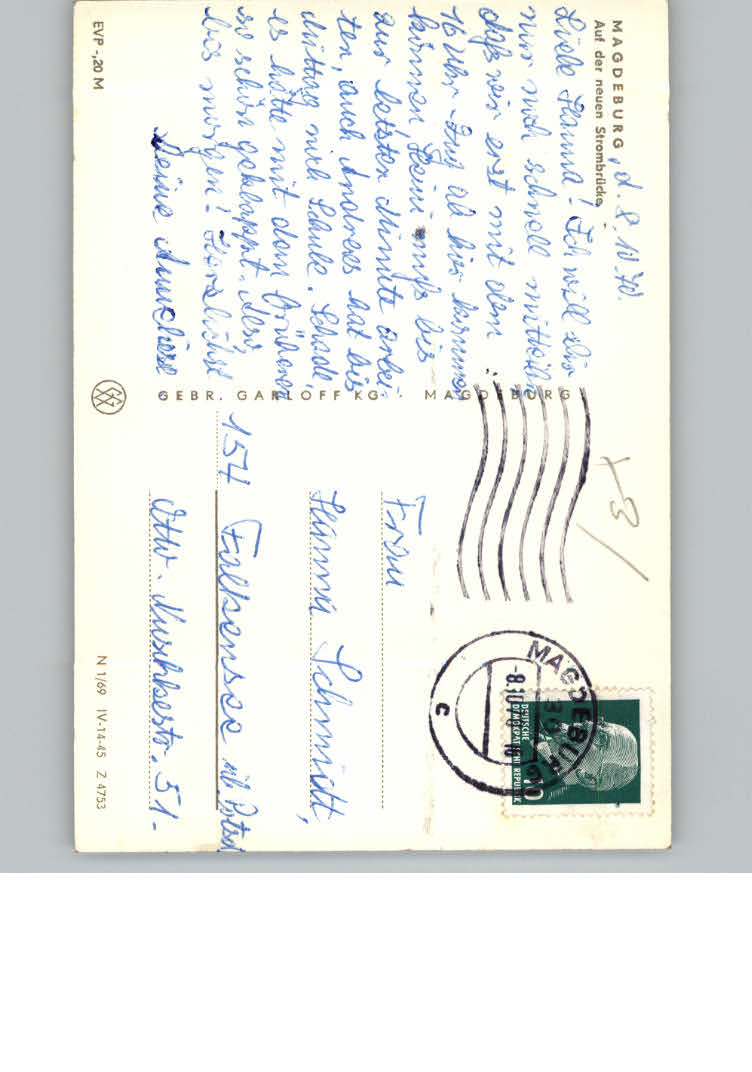 MAGDEBURG, d. 8. 10. 70.
Auf der neuen Strombrücke
Liebe Hanna! Ich will Dir
nur noch schnell mitteilen
daß wir erst mit dem
16 Uhr-Zug ab hier kommen
können, Heini muß bis
zur letzten Minute arbei-
ten, auch Andreas hat bis
Mittag noch Schule. Schade,
es hätte mit dem früheren
so schön geklappt. Also
bis morgen! Herzlichst
Deine Anneliese
EVP -,20 M
GEBR. GARLOFF KG · MAGDEBURG
Frau
Hanna Schmidt,
154 Falkensee üb. Potsd
Ottw. Nuschkestr. 51-
N 1/69 IV-14-45 Z 4753
MAGDEBURG
30
-8.10.
c
DEUTSCHE
DEMOKRATISCHE REPUBLIK
10